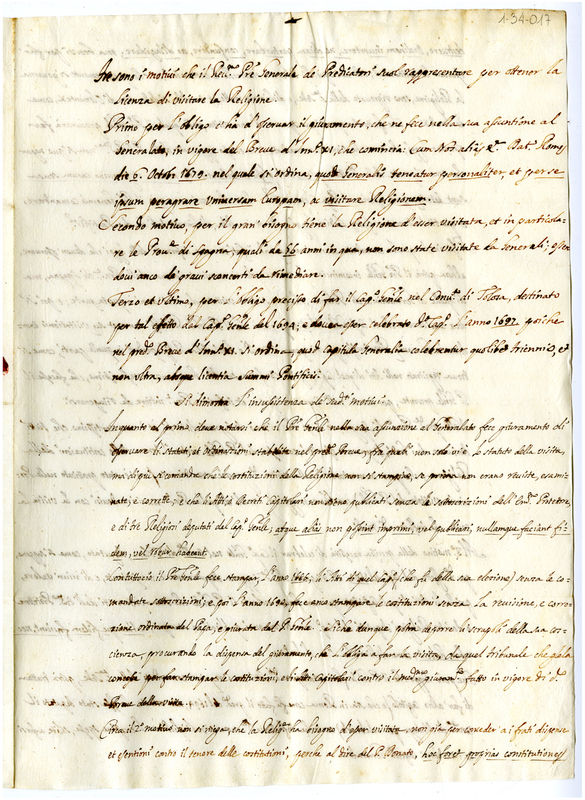 1-34-017
Tre sono i motivi che il Rev.mo Pre Generale de Predicatori suol rappresentare per ottener la
licenza di visitare la Religione.
Primo per l'obligo c'hà d'osservar il giuramento, che ne fece nella sua assuntione al
Generalato, in vigore del Breve d'Inn.o XI, che comincia: Cum Nos alias Dat. Romę
die 6. Octobr 1679. nel quale si ordina, quod Generalis teneatur personaliter, et per se
ipsum peragrare universam Europam, ac visitare Religionem.
Secondo motivo, per il gran bisogno tiene la Religione d'esser visitata, et in particola-
re le Prov.e di Spagna, quali da 56 anni in qua, non sono state visitate da Generali; esser
dovi anco de gravi sconcerti da rimediare.
Terzo et ultimo, per l'obligo preciso di far il Cap.o Gñle nel Conv.o di Tolosa, destinato
per tal effetto dal Cap.o Gñle del 1694; e doveva esser celebrato d.o Cap.o l'anno 1697, poiche
nel pred.o Breve d'Inn.o XI. si ordina, quod Capitula Generalia celebrentur quolibet triennio, et
non ultra, absque licentia Summi Pontificis.
Si dimostra l'insussistenza de sud.i motivi.
In quanto al primo, deve notarsi che il Pre Gñle nella sua assuntione al Generalato fece giuramento di
osservare li statuti et ordinationi stabilite nel pred.o Breve, fra quali non solo vi è lo statuto della visita,
mà di più si comanda che le costitutioni della Religione non si stampino, se prima non erano reviste, esami
nate, e corrette; e che li Decreti Capitolari non siano publicati senza le sottoscrizioni dell'Em.o Protettore,
e di tre Religiosi deputati dal Cap.o Gñle; atque alias non possint imprimi, vel publicari, nullamque faciant fi-
dem, vel
Contuttociò il Pre Gñle fece stampar l'anno 1686, li Atti di quel Cap.o (che fù della sua elezione) senza le co-
mandate sottoscrizioni; e poi l'anno 1690, fece anco stampare le costitutioni senza la revisione, e corre-
zione ordinata dal Papa, e giurata dal P. Gñle. e dunque potrà deporre li scrupoli della sua co-
scienza, procurando la dispensa del giuramento, che l'obliga a far la visita, da quel tribunale che
concessa per far stampar le costitutioni, e li atti Capitolari contro il med.mo giuram.o fatto in vigore di d.o
Breve della visita.
Circa il 2.o motivo, non si niega, che la Relig.e ha bisogno d'esser visitata, non già per conceder a i frati dispense
et esentioni contro il tenore delle costitutioni, perche al dire del P. Donato, hoc foret proprias constitutiones